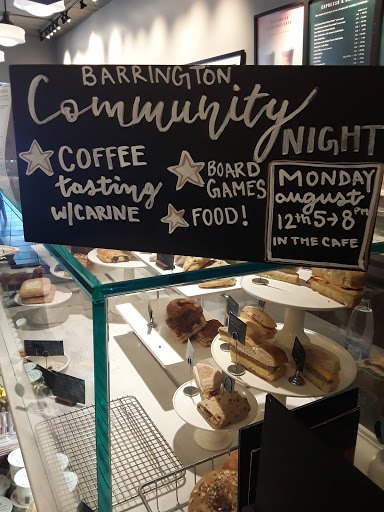 BARRINGTON
Community
NIGHT
COFFEE
tasting
W/CARINE
BOARD
GAMES
FOOD!
MONDAY
august
12th 5→8PM
IN THE CAFE